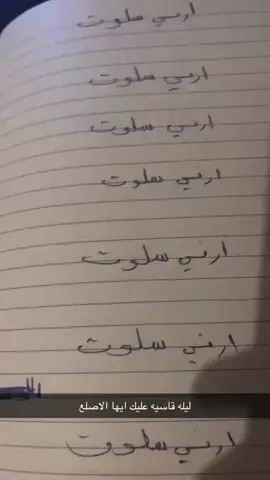 ارني سلوت
ارني سلوت
ارني سلوت
ارني سلوت
ارني سلوت
ارني سلوت
ليله قاسيه عليك ايها الاصلع
ارني سلوت